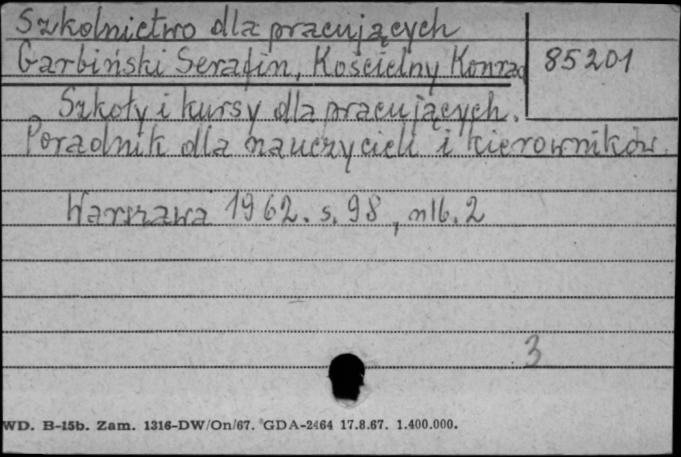 Szkolnictwo dla pracujących
Garbiński Serafin, Kościelny Konrad
85201
Szkoły i kursy dla pracujących.
Poradnik dla nauczycieli i kierowników.
Warszawa 1962. s. 98, nlb. 2
3
WD. B-15b. Zam. 1316-DW/On/67. GDA-2464 17.8.67. 1.400.000.